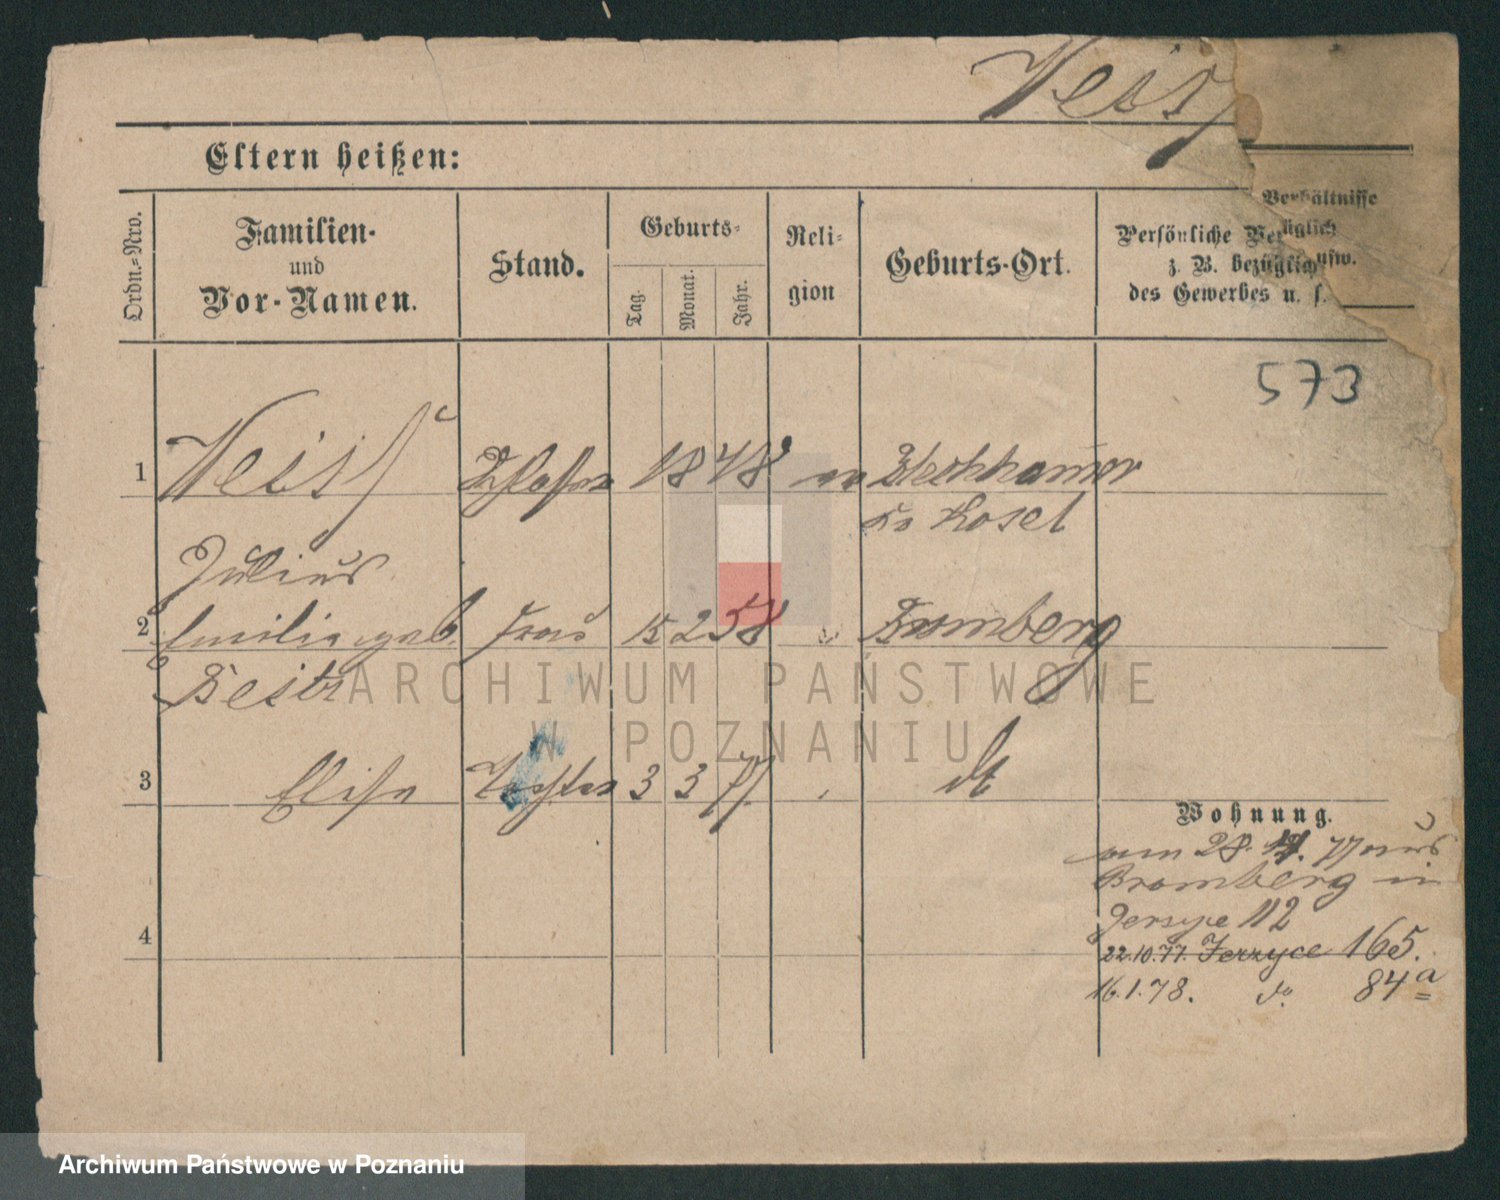 Weiß
Eltern heißen:
Ordn.-Nro.
Familien-
und
Vor-Namen.
Stand.
Geburts-
Tag.
Monat.
Jahr.
Reli-
gion
Geburts-Ort.
Verhältnisse
Persönliche
z. B. bezüglich
usw.
des Gewerbes u. s.
573
1
Weiß
Schlosser
1848
Blechhamer
Kr Kosel
Julius
2
Emilie geb.
Frau
15 2 58
Bromberg
3
Elise
Tochter
3 3 77
dt
Wohnung.
am 28. 77 aus
Bromberg in
Jersyce 112
22.10.77. Jerzyce 165.
16.1.78. do. 84a
4
ARCHIWUM PAŃSTWOWE
W POZNANIU
Archiwum Państwowe w Poznaniu